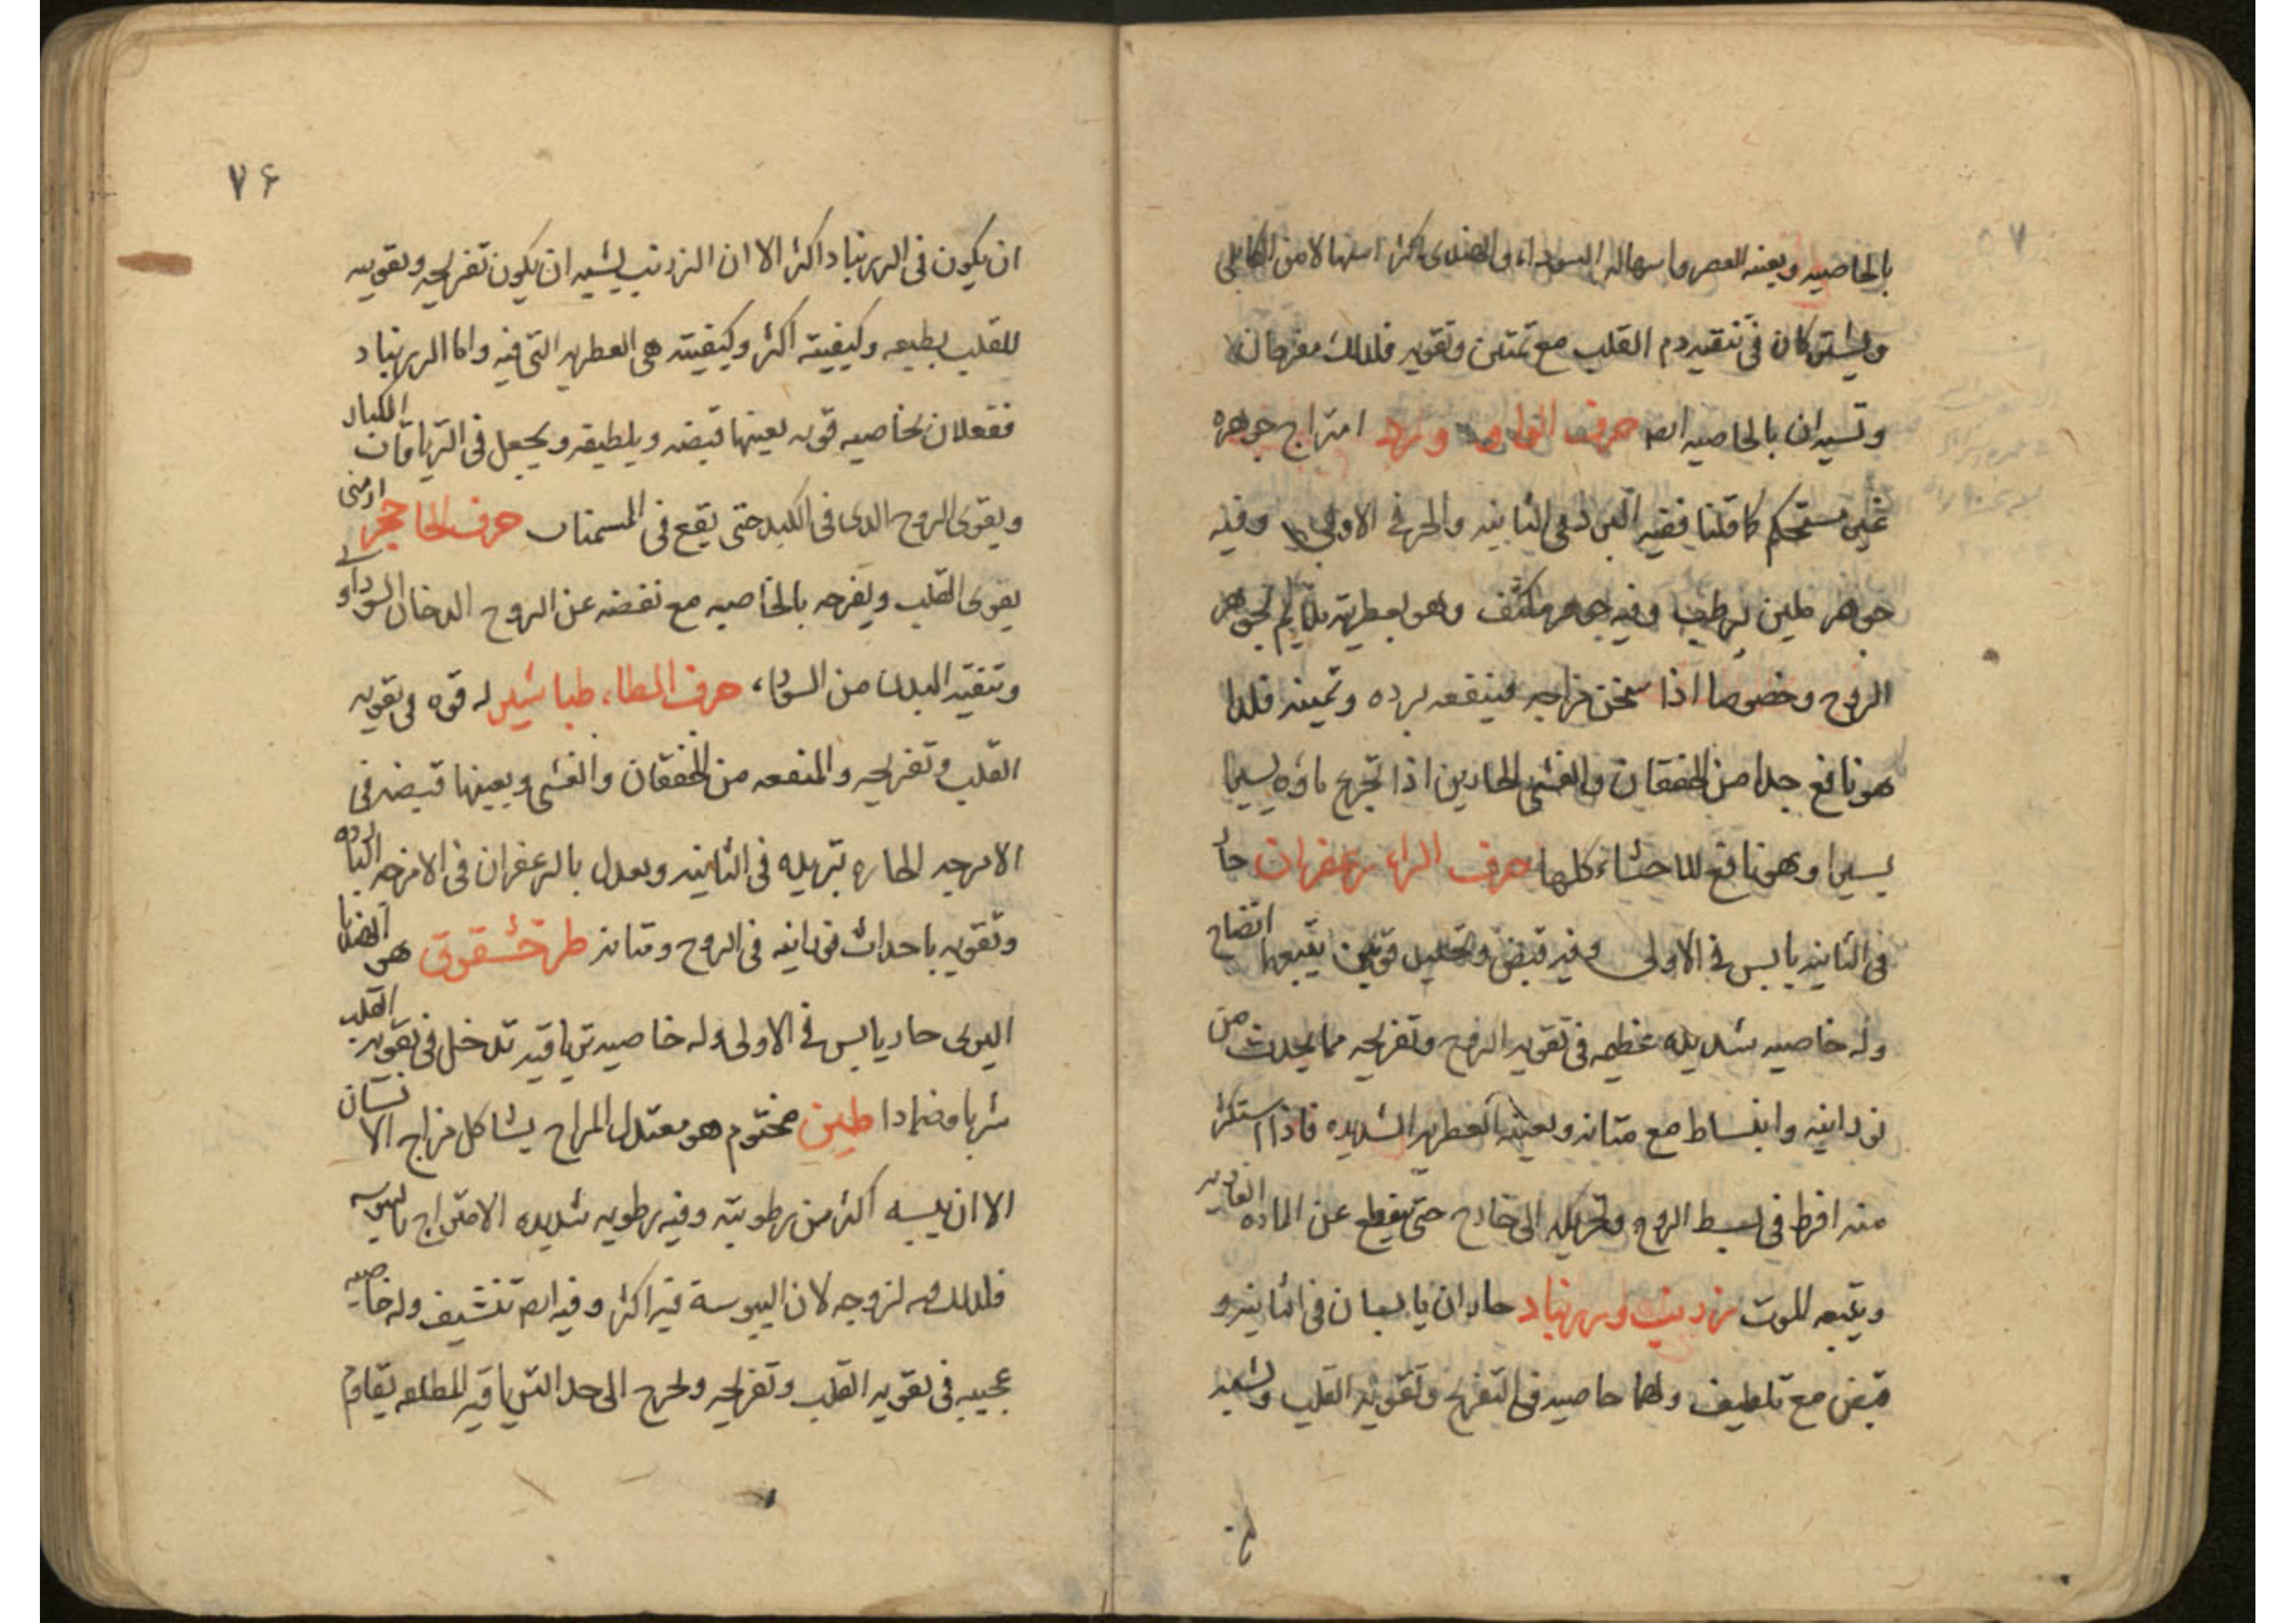 بالخاصيه ويعينه العصر واسهاله السوداء والهندى اكثر اسهالا من الكابلى
ويشتركان فى تنقيه دم القلب مع تمتين وتقويه فلذلك مفرحان
وتسيران بالخاصيه ايضا حرف الواو ورد امتزاج جوهره
غير مستحكم كما قلنا ففيه البرد فى الثانيه والحر فى الاولى وفيه
جوهر ملين لرطيب وفيه جوهر مكثف وهو بعطريته يلايم لجوهر
الروح وخصوصا اذا سخن مزاجه فينفعه برده وتمتينه فلذا
هو نافع جدا من الخفقان والغشى الحارين اذا تجرع ماؤه يسيرا
يسيرا وهو نافع للاحشاء كلها حرف الزاء زعفران حار
فى الثانيه يابس فى الاولى وفيه قبض وتحليل قويين يتبعها انضاح
وله خاصيه شديده عظيمه فى تقويه الروح وتفريحه مما يحدث من
نورانيه وانبساط مع متانه ويعينه العطريه الشديده فاذا استكثر
منه افرط فى بسط الروح وتحريكه الى خارج حتى ينقطع عن الماده الغاذيه
ويتبعه للموت زرنب وزرنباد حاران يابسان فى الثانيه و
قبض مع تلطيف ولهما خاصيه فى التفريح وتقويه القلب ويشبه
ج
٧۶
ان يكون فى الزرنباد اكثر الا ان الزرنب يشبه ان يكون تفريحه وتقويته
للقلب بطبعه وكيفيته اكثر وكيفيته هى العطريه التى فيه واما الزرنباد
ففعلان بخاصيه قويه يعينها قبضه ويلطيفه ويجعل فى الترياقات الكبار
ويقوى الروح الذى فى الكبد حتى يقع فى المسمنات حرف الحا حجر ارمنى
يقوى القلب ويفرحه بالخاصيه مع نفضه عن الروح الدخان السوداوى
وتنقيه البدن من السوداء، حرف الطاء، طباشير له قوه فى تقويه
القلب وتفريحه والمنفعه من الخفقان والغشى ويعينها قبضه فى
الامزجه الحاره تبريده فى الثانيه ويعدل بالزعفران فى الامزجه البارده
وتقويه باحداث نورانيه فى الروح ومتانه طرخشقوق هو الهندبا
البرى حار يابس فى الاولى وله خاصيه ترياقيه تدخل فى تقويه القلب
شربا وضمادا طين مختوم هو معتدل المزاج يشاكل مزاج الانسان
الا ان يبسه اكثر من رطوبته وفيه رطوبه شديده الامتزاج باليبوسه
فلذلك فيه لزوجه لان اليبوسة فيه اكثر وفيه ايضا تنشيف وله خاصيه
عجيبه فى تقويه القلب وتفريحه ولخرج الى حد الترياقيه المطلقه يقاوم